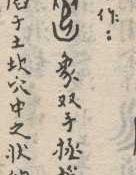 作：
象双手拯
于土坎穴中之状